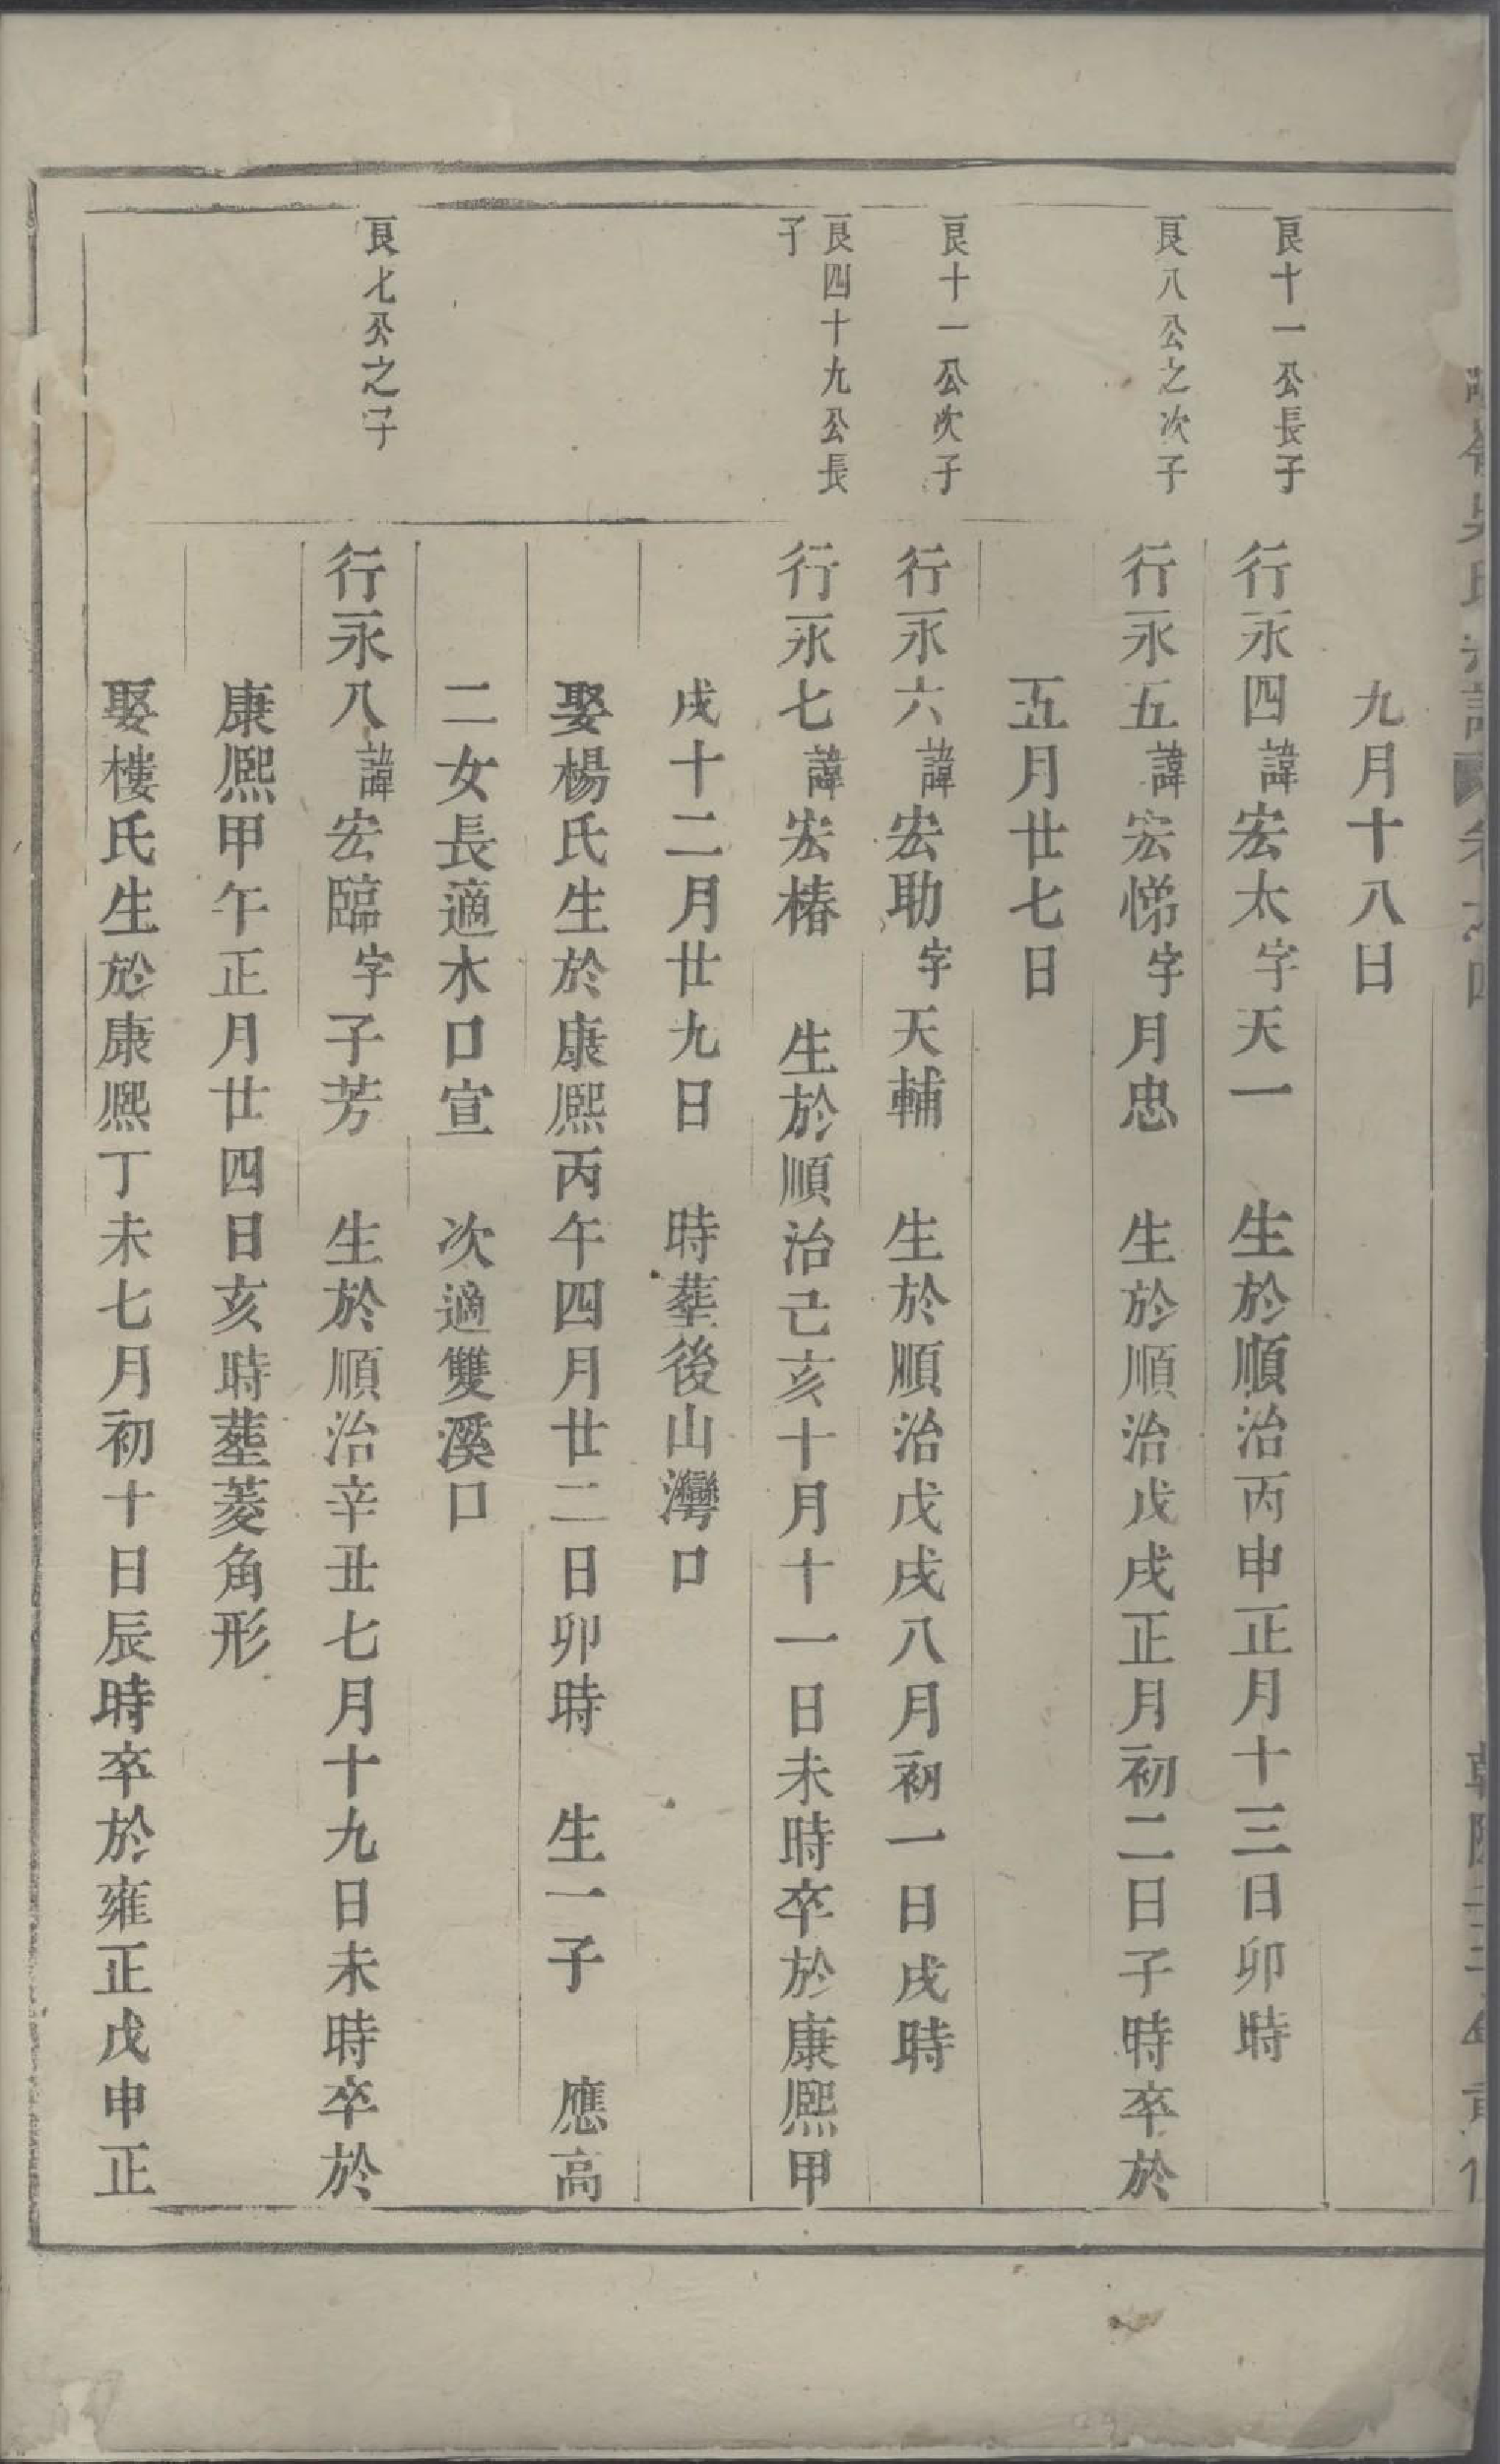 九月十八日
良十一公長子
行永四諱宏太字天一 生於順治丙申正月十三日卯時
良八公之次子
行永五諱宏悌字月忠 生於順治戊戌正月初二日子時卒於
五月廿七日
良十一公次子
行永六諱宏助字天輔 生於順治戊戌八月初一日戌時
良四十九公長
子
行永七諱宏椿 生於順治己亥十月十一日未時卒於康熙甲
戌十二月廿九日 時塟後山灣口
娶楊氏生於康熙丙午四月廿二日卯時 生一子 應高
二女長適水口宣 次適雙溪口
良七公之子
行永八諱宏臨字子芳 生於順治辛丑七月十九日未時卒於
康熙甲午正月廿四日亥時塟菱角形
娶樓氏生於康熙丁未七月初十日辰時卒於雍正戊申正